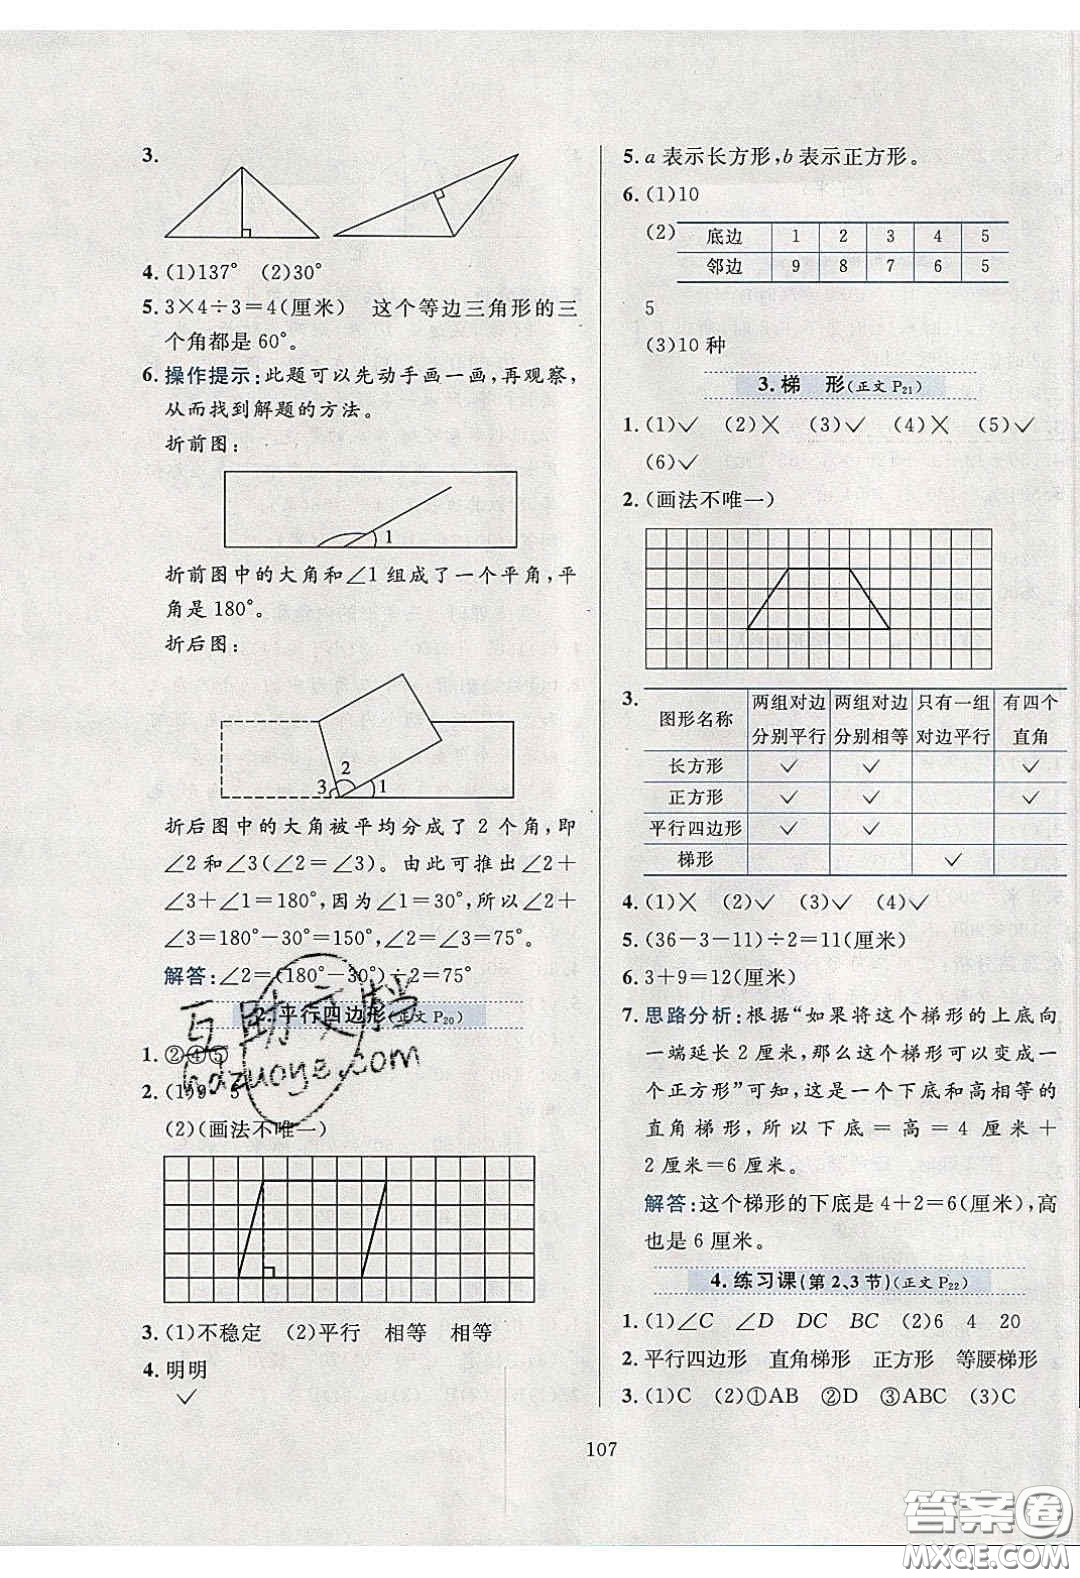 3.
4. (1)137° (2)30°
5. 3×4÷3=4(厘米) 这个等边三角形的三
个角都是 60°。
6. 操作提示:此题可以先动手画一画,再观察,
从而找到解题的方法。
折前图:
1
折前图中的大角和∠1 组成了一个平角,平
角是 180°。
折后图:
2
3
1
折后图中的大角被平均分成了 2 个角,即
∠2 和∠3(∠2=∠3)。由此可推出∠2+
∠3+∠1=180°,因为∠1=30°,所以∠2+
∠3=180°-30°=150°,∠2=∠3=75°。
解答:∠2=(180°-30°)÷2=75°
2. 平行四边形(正文 P20)
1. ②④⑤
2. (1)9 5
(2)(画法不唯一)
3. (1)不稳定 (2)平行 相等 相等
4. 明明
✓
5. a 表示长方形,b 表示正方形。
6. (1)10
(2) 底边 1 2 3 4 5
邻边 9 8 7 6 5
5
(3)10 种
3. 梯 形(正文 P21)
1. (1)✓ (2)✕ (3)✓ (4)✕ (5)✓
(6)✓
2. (画法不唯一)
3. 图形名称 两组对边分别平行 两组对边分别相等 只有一组对边平行 有四个直角
长方形 ✓ ✓ ✓
正方形 ✓ ✓ ✓
平行四边形 ✓ ✓
梯形 ✓
4. (1)✕ (2)✓ (3)✓ (4)✓
5. (36-3-11)÷2=11(厘米)
6. 3+9=12(厘米)
7. 思路分析:根据“如果将这个梯形的上底向
一端延长 2 厘米,那么这个梯形可以变成一
个正方形”可知,这是一个下底和高相等的
直角梯形,所以下底=高=4 厘米+
2 厘米=6 厘米。
解答:这个梯形的下底是 4+2=6(厘米),高
也是 6 厘米。
4. 练习课(第 2、3 节)(正文 P22)
1. (1)∠C ∠D DC BC (2)6 4 20
2. 平行四边形 直角梯形 正方形 等腰梯形
3. (1)C (2)①AB ②D ③ABC (3)C
107
互助文档
hazuoye.com
答案圈
MXQE.COM